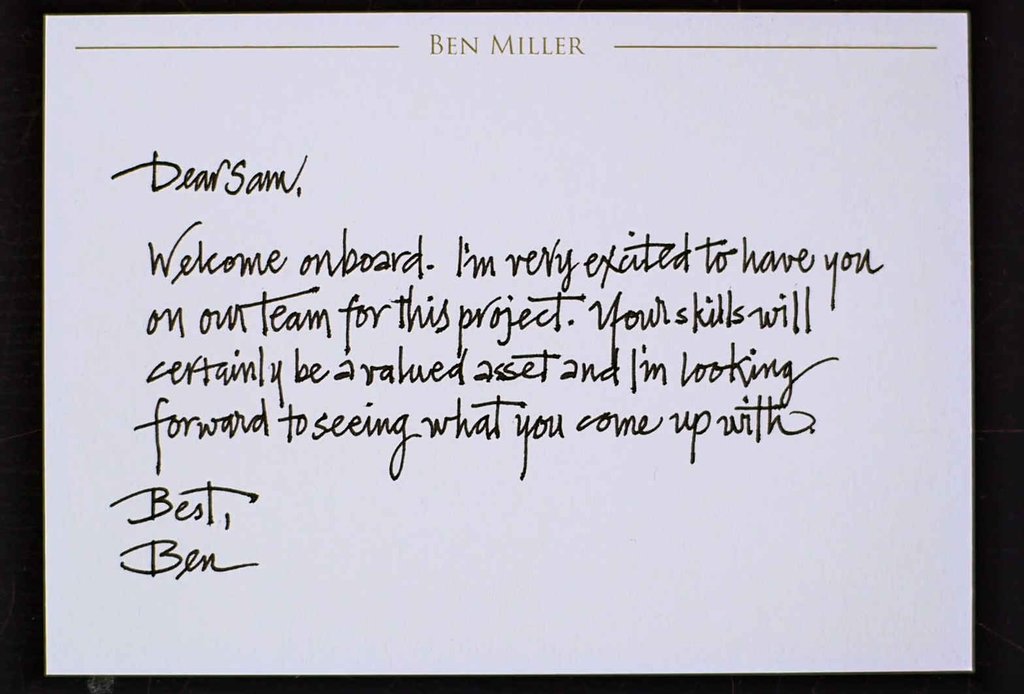 BEN MILLER
Dear Sam,
Welcome onboard. I'm very excited to have you
on our team for this project. Your skills will
certainly be a valued asset and I'm looking
forward to seeing what you come up with.
Best,
Ben